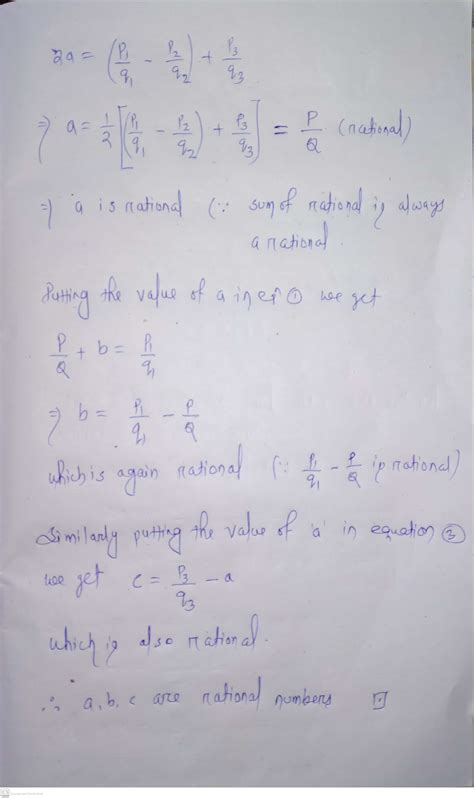 2a = (P₁/q₁ - P₂/q₂) + P₃/q₃
⇒ a = 1/2 [(P₁/q₁ - P₂/q₂) + P₃/q₃] = P/Q (rational)
⇒ a is rational (∵ sum of rational is always
a rational.
Putting the value of a in eqⁿ ① we get
P/Q + b = P₁/q₁
⇒ b = P₁/q₁ - P/Q
which is again rational (∵ P₁/q₁ - P/Q is rational)
Similarly putting the value of 'a' in equation ③
we get c = P₃/q₃ - a
which is also rational.
∴ a, b, c are rational numbers ⊡